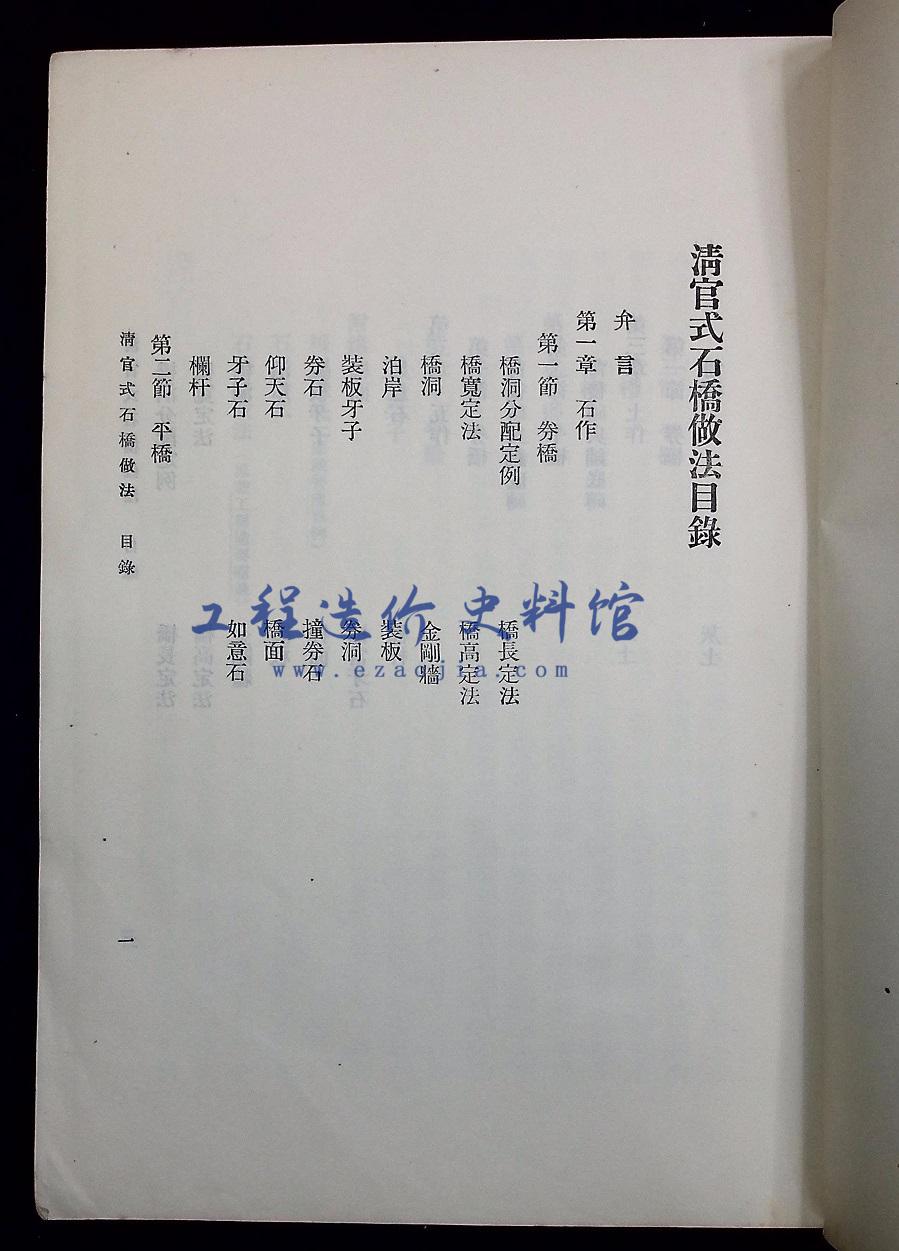 清官式石橋做法目錄
弁言
第一章 石作
第一節 券橋
橋洞分配定例 橋長定法
橋寬定法 橋高定法
橋洞 金剛牆
泊岸 裝板
裝板牙子 券洞
券石 撞券石
仰天石 橋面
牙子石 如意石
欄杆
第二節 平橋
清官式石橋做法 目錄
一
工程造价史料馆
www.ezaojia.com